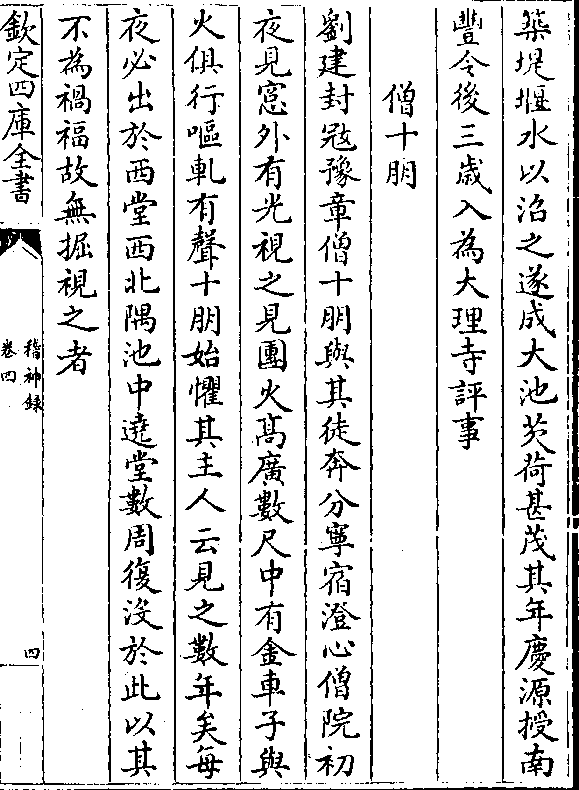 築堤堰水以沼之遂成大池芡荷甚茂其年慶源授南
豐令後三歲入為大理寺評事
僧十朋
劉建封冦豫章僧十朋與其徒奔分寧宿澄心僧院初
夜見窓外有光視之見團火髙廣數尺中有金車子與
火俱行嘔軋有聲十朋始懼其主人云見之數年矣每
夜必出於西堂西北隅池中遶堂數周復沒於此以其
不為禍福故無掘視之者
欽定四庫全書
稽神錄
卷四
四